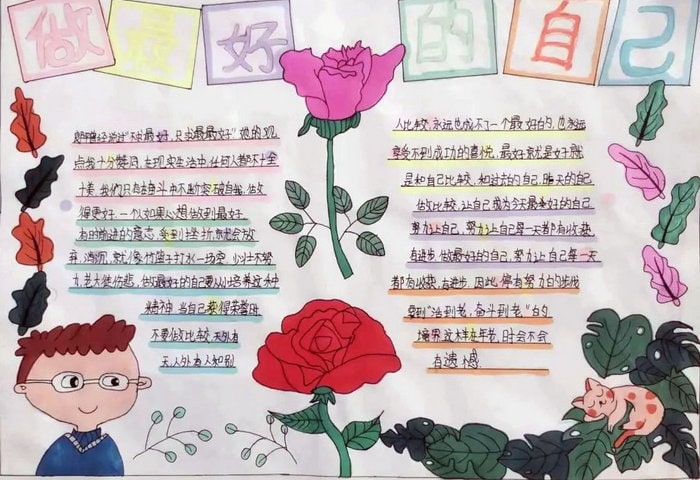 做最好的自己
点我十分赞同,在现实生活中,任何人都不十全
十美,我们只有奋斗中不断突破自能,做
得更好.一个如果心想做到最好
有时前进的意志,受到挫折就会放
弃,消沉,就像竹篮子打水一场空,少壮不努
力,老大徒伤悲,做最好的自己要从小培养这种
精神,当自己获得荣誉时
不要做比较,
天人外有人知别
人比较,永远也成不了一个最好的,也永远
享受不到成功的喜悦,最好就是好
是和自己比较,和过去的自己,昨天的自己
做比较,让自己成为今天最美好的自己
努力让自己,努力让自己每一天都有收获
有进步,做最好的自己,努力让自己每一天
都有收获,有进步,因此,停有努力的步伐
要到"活到老,奋斗到老"的
境界,这样在年老,时会不会
有遗憾.